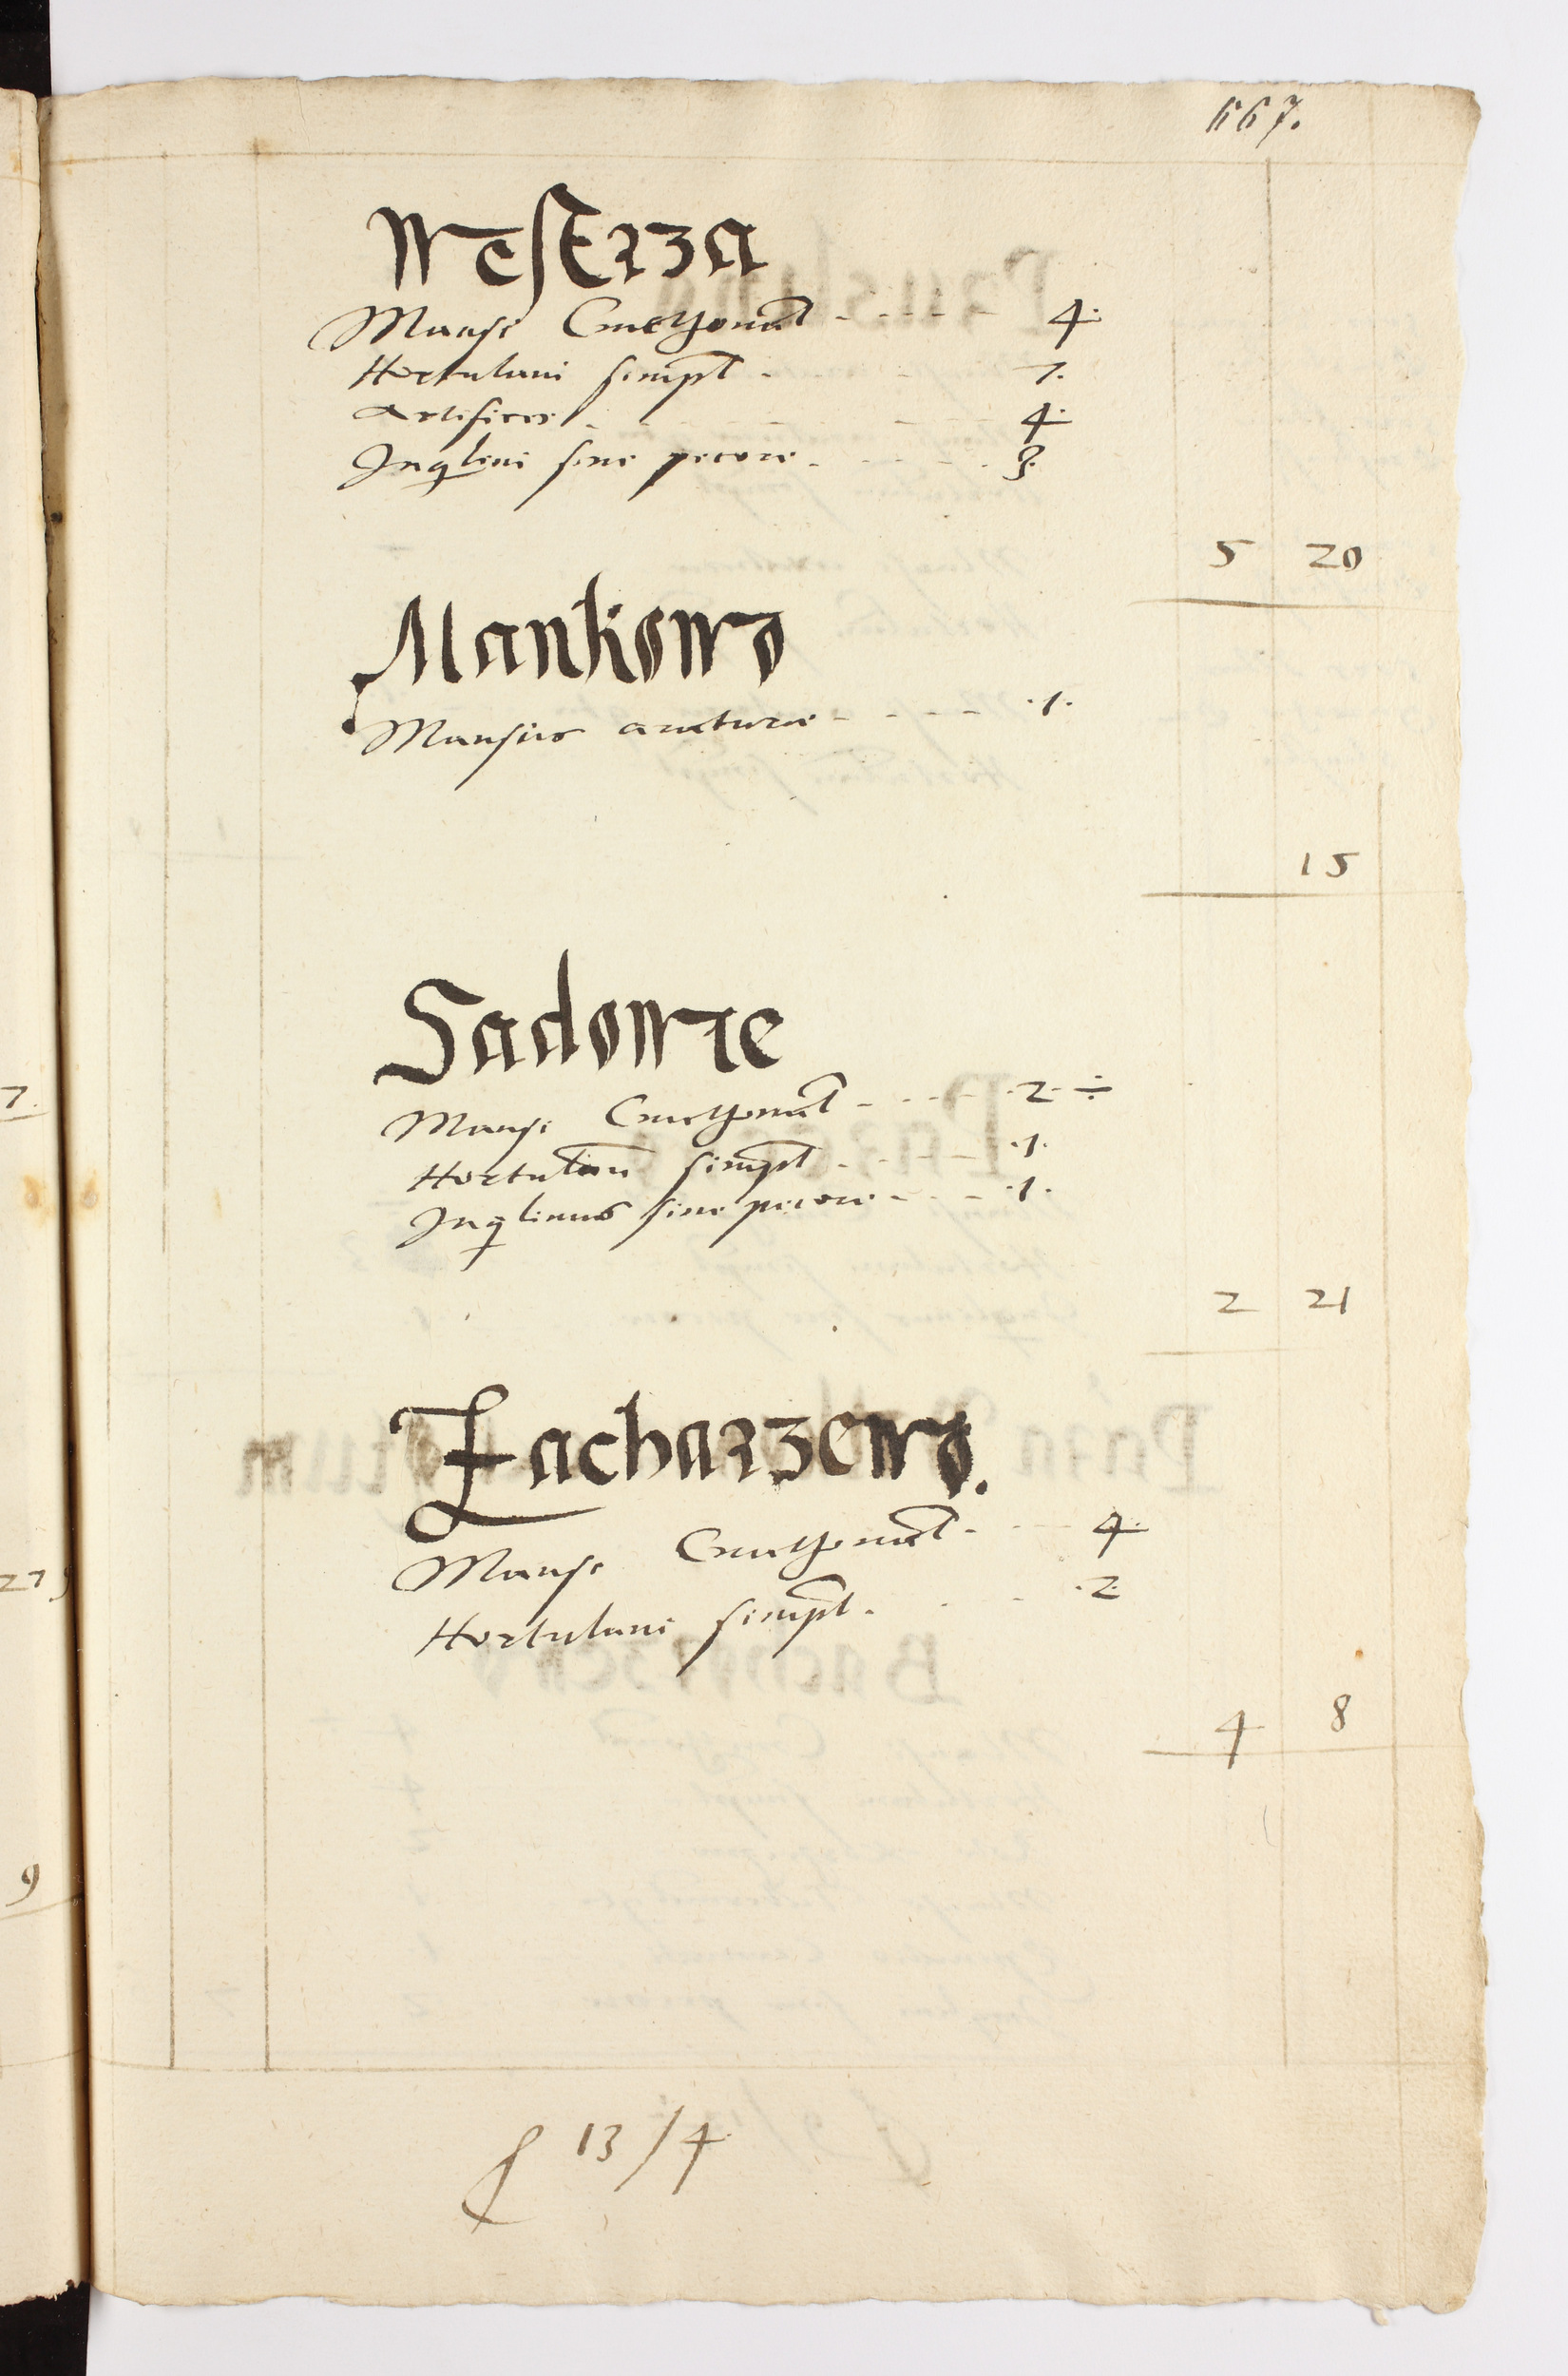 667.
Westrza
Mansi Cmethonal 4.
Hortulani simpl 7.
Artifices 4.
Inqlini sine pecore 3.
5 20
Mankowo
Mansus araturae .1.
15
Sadowie
Mansi Cmethonal .2. ÷
Hortulan simpl .1.
Inqlinus sine pecore .1.
2 21
Zacharzewo.
Mansi Cmethonal 4.
Hortulani simpl .2.
4 8
f 13/4
7.
9